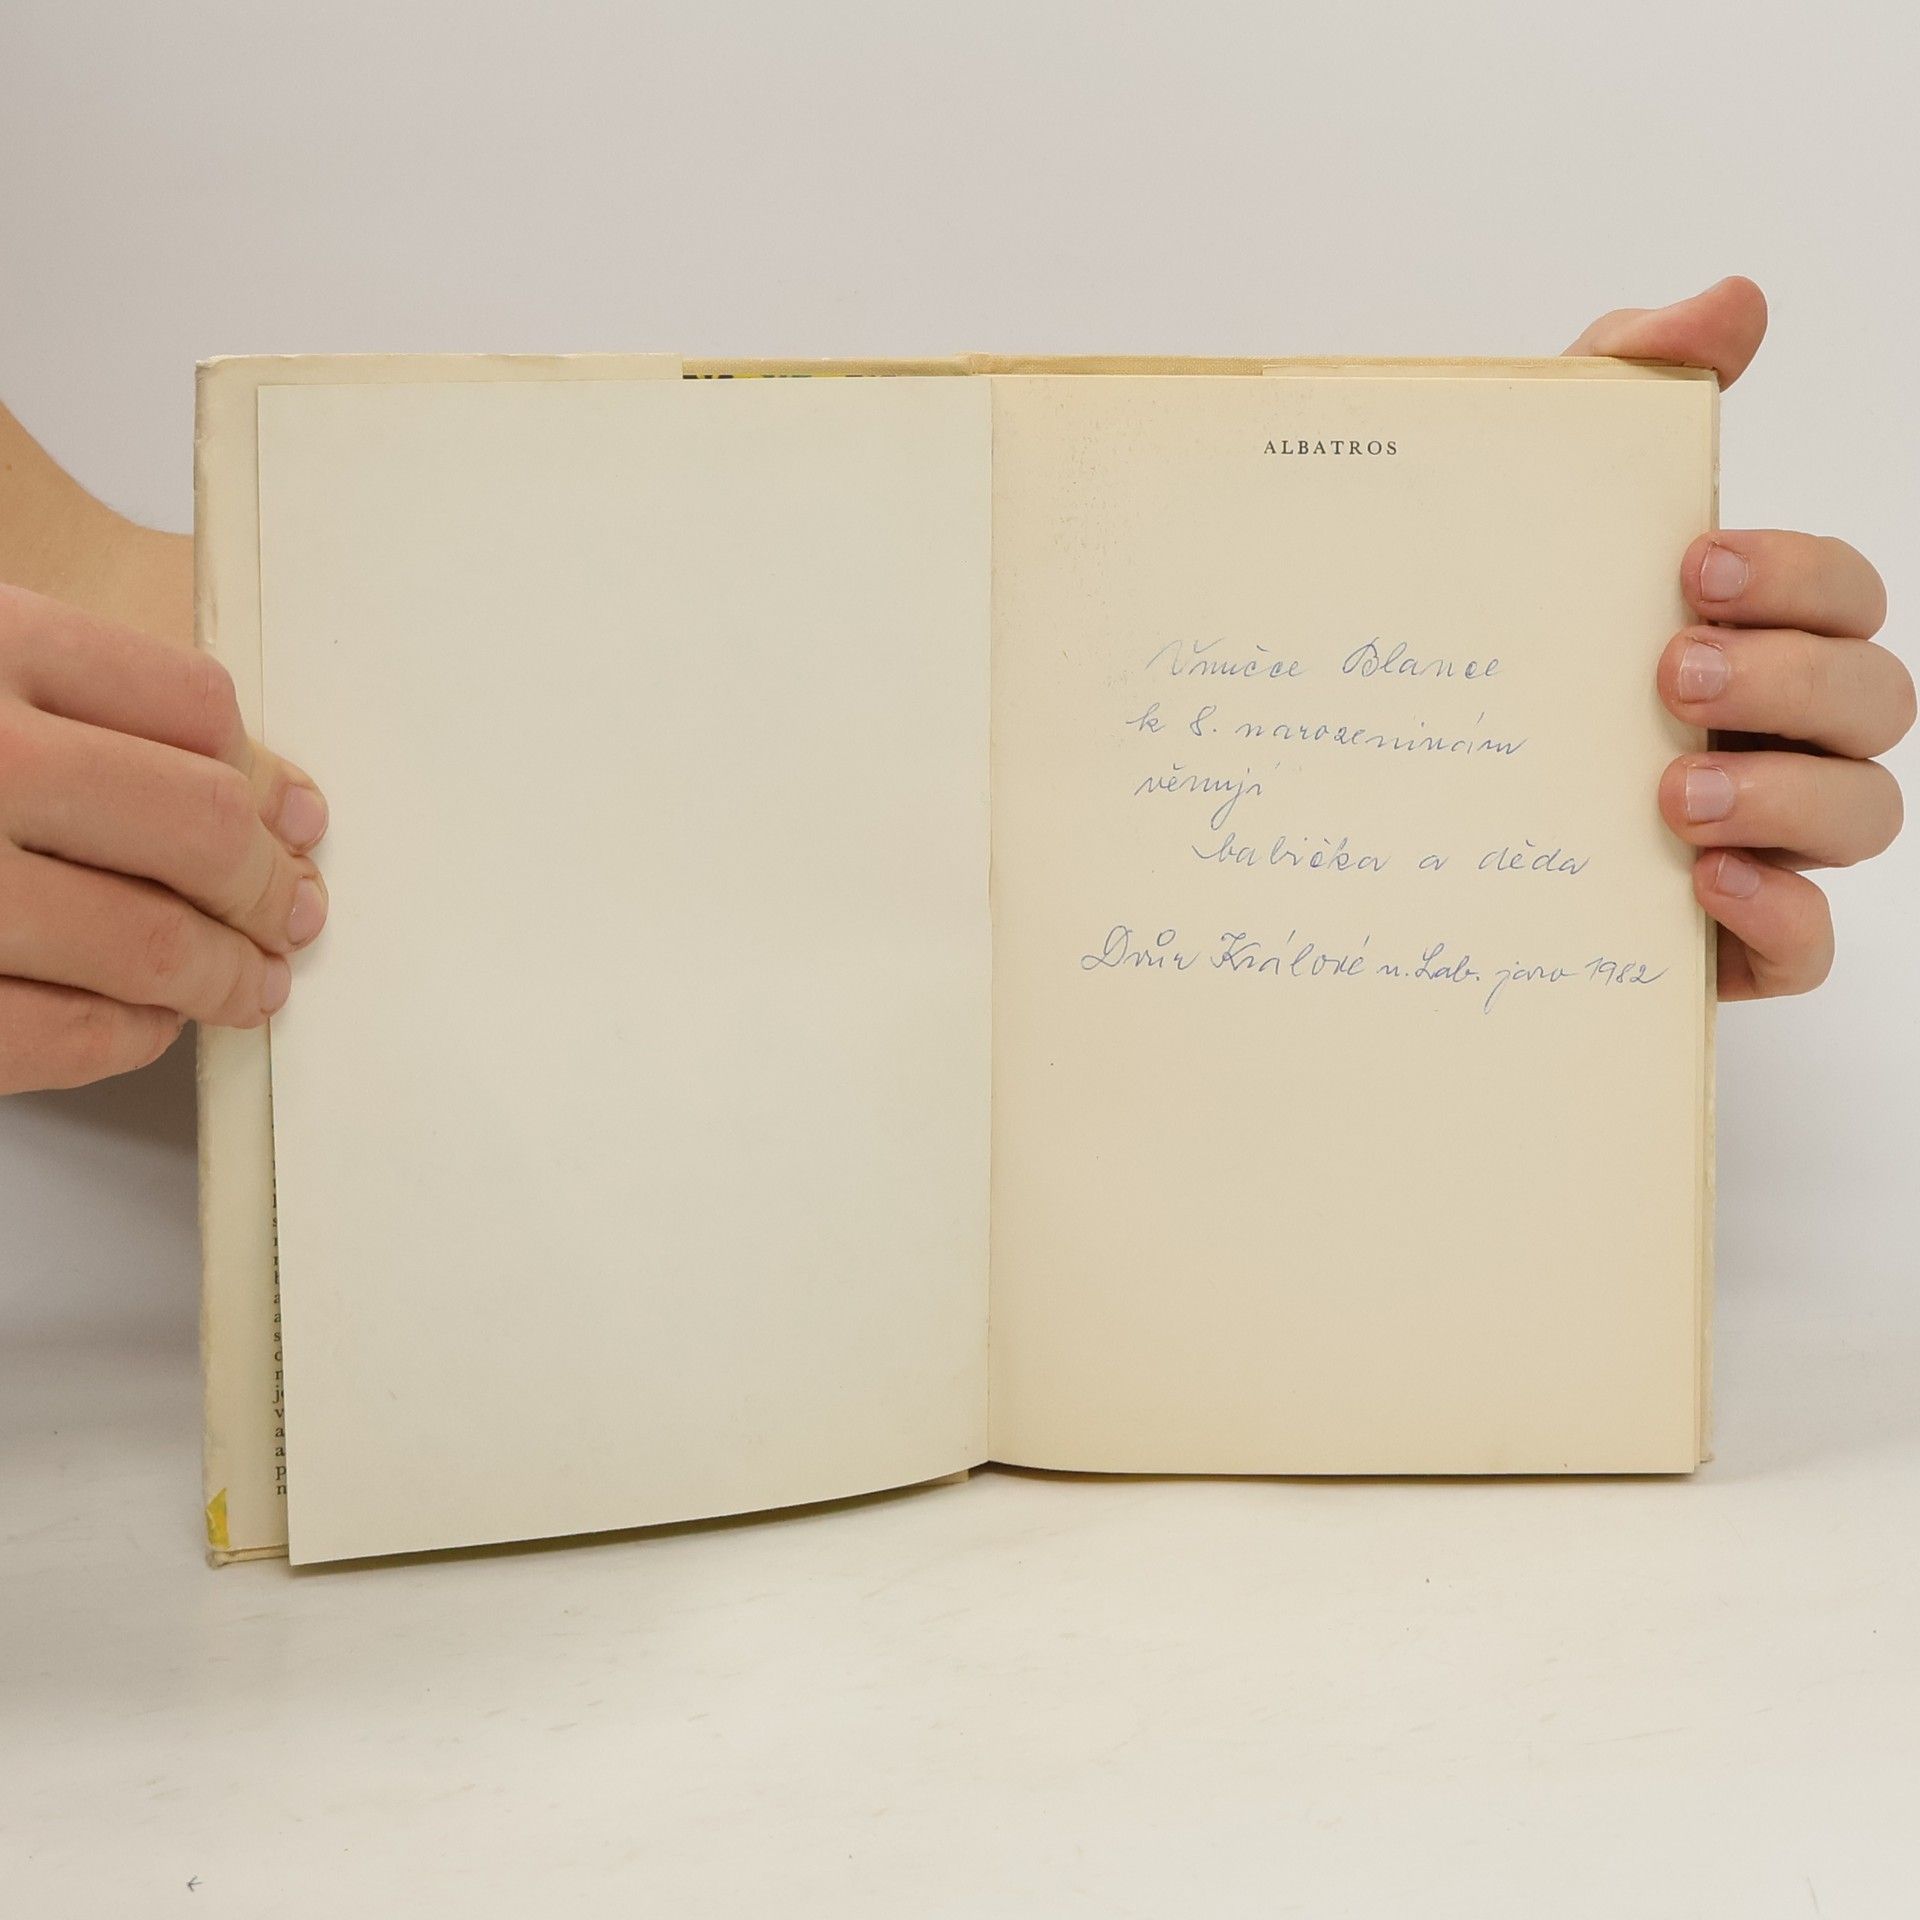 ALBATROS
Vnučce Blance
k 8. narozeninám
věnují
babička a děda
Dvůr Králové n. Lab. jaro 1982